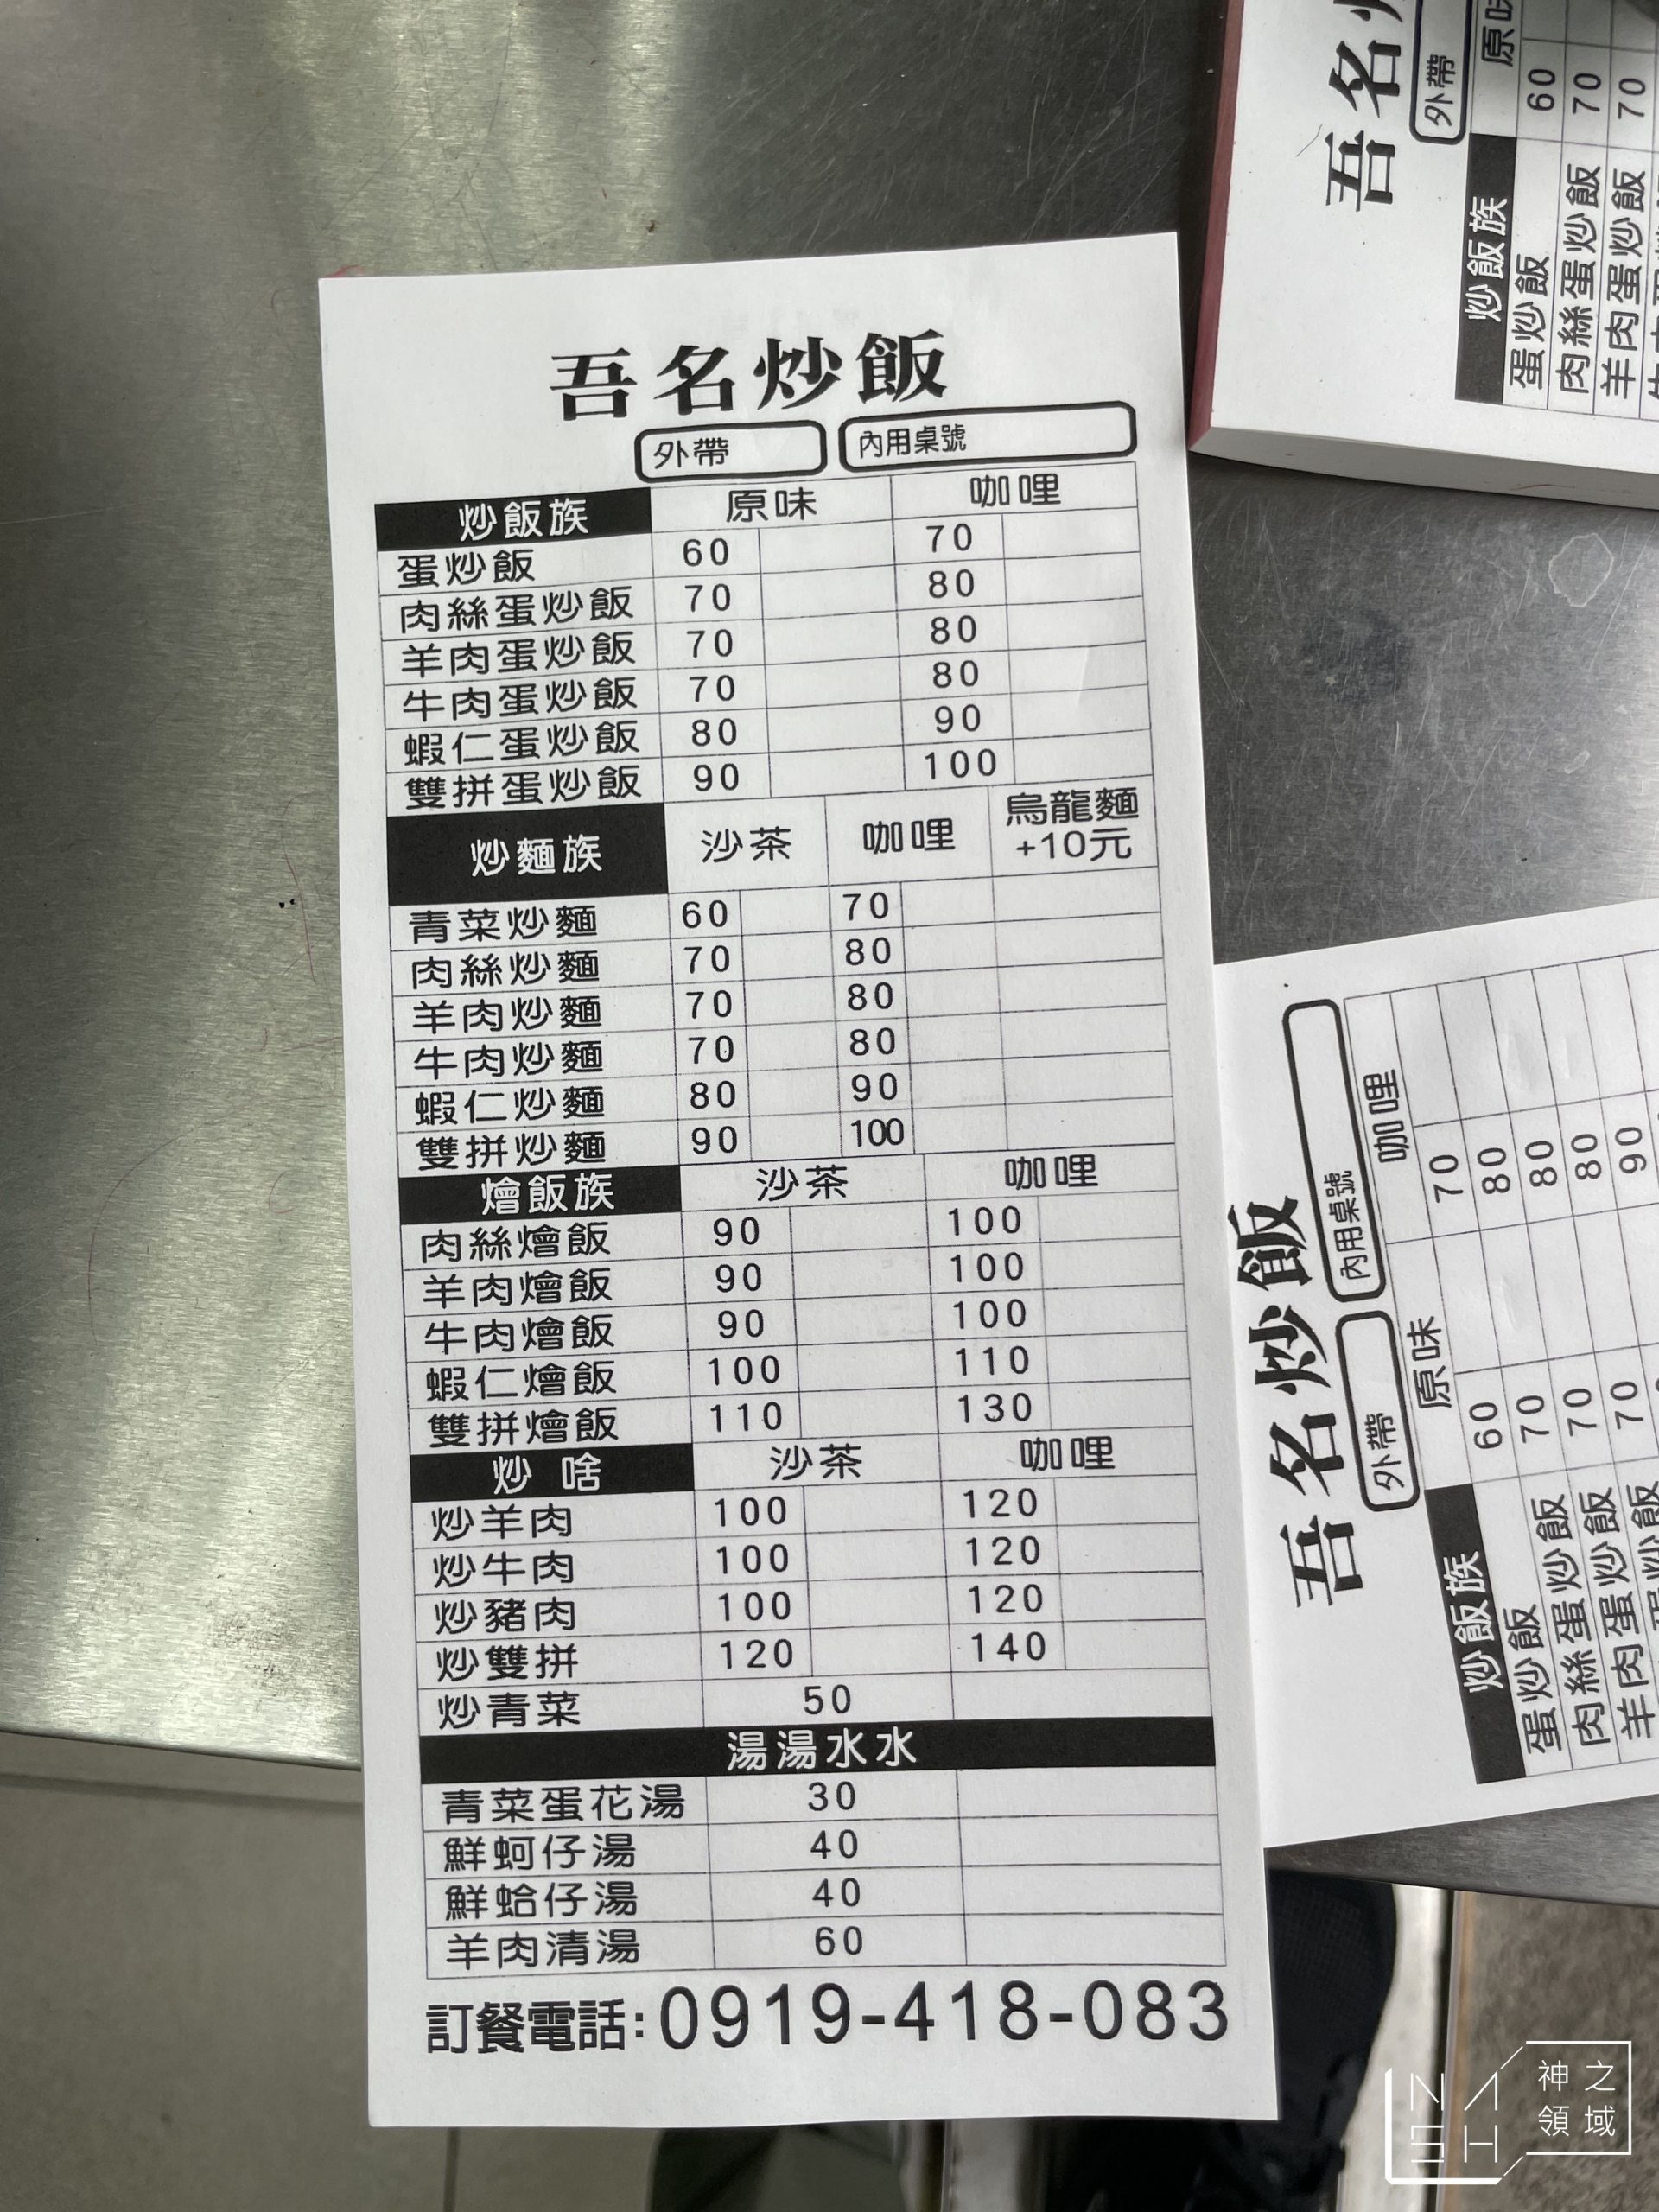 吾名炒飯
外帶 內用桌號
炒飯族 原味 咖哩
蛋炒飯 60 70
肉絲蛋炒飯 70 80
羊肉蛋炒飯 70 80
牛肉蛋炒飯 70 80
蝦仁蛋炒飯 80 90
雙拼蛋炒飯 90 100
炒麵族 沙茶 咖哩 烏龍麵
+10元
青菜炒麵 60 70
肉絲炒麵 70 80
羊肉炒麵 70 80
牛肉炒麵 70 80
蝦仁炒麵 80 90
雙拼炒麵 90 100
燴飯族 沙茶 咖哩
肉絲燴飯 90 100
羊肉燴飯 90 100
牛肉燴飯 90 100
蝦仁燴飯 100 110
雙拼燴飯 110 130
炒 啥 沙茶 咖哩
炒羊肉 100 120
炒牛肉 100 120
炒豬肉 100 120
炒雙拼 120 140
炒青菜 50
湯湯水水
青菜蛋花湯 30
鮮蚵仔湯 40
鮮蛤仔湯 40
羊肉清湯 60
訂餐電話:0919-418-083
吾名
外帶
炒飯族 原味
蛋炒飯 60
肉絲蛋炒飯 70
羊肉蛋炒飯 70
吾名炒飯
外帶 內用桌號
炒飯族 原味 咖哩
蛋炒飯 60 70
肉絲蛋炒飯 70 80
羊肉蛋炒飯 70 80
70 80
90
NASH
神之
領域